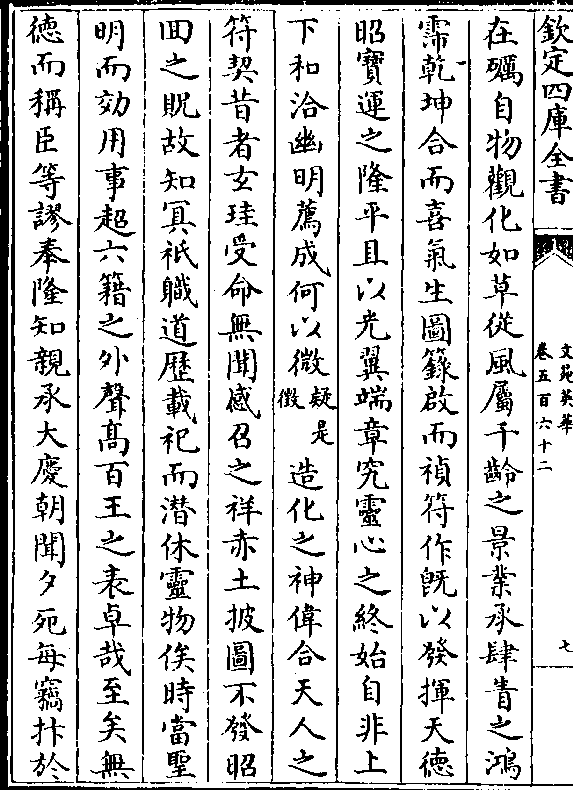 欽定四庫全書
文苑英華
卷五百六十二
七
在礪自物觀化如草從風屬千齡之景業承肆眚之鴻
霈乾坤合而喜氣生圖籙啟而禎符作旣以發揮天德
昭寶運之隆平且以光翼端章究靈心之終始自非上
下和洽幽明薦成何以微疑是徴造化之神偉合天人之
符契昔者玄珪受命無聞感召之祥赤土披圖不發昭
回之貺故知冥祇職道歴載祀而潜休靈物俟時當聖
明而効用事超六籍之外聲髙百王之表卓哉至矣無
徳而稱臣等謬奉隆知親承大慶朝聞夕死每竊抃於